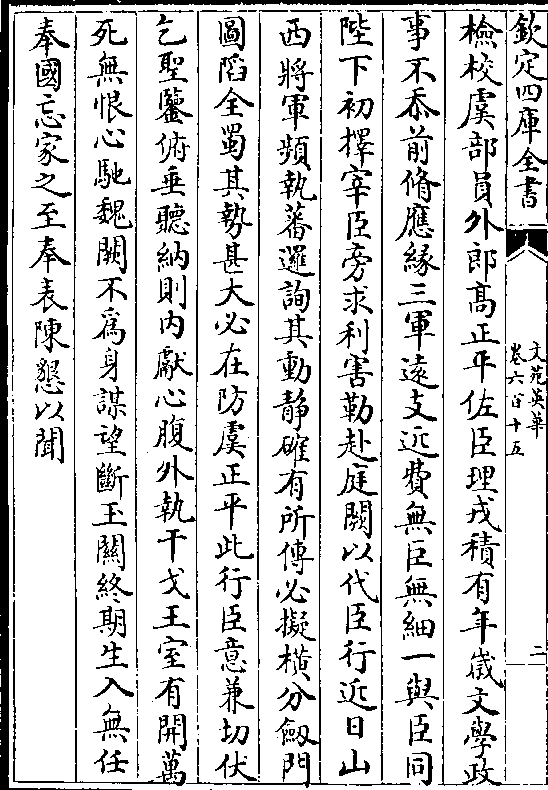 欽定四庫全書
文苑英華
卷六百十五
二
檢校虞部員外郎髙正平佐臣理戎積有年嵗文學政
事不忝前脩應縁三軍遠支近費無巨無細一與臣同
陛下初擇宰臣旁求利害勒赴庭闕以代臣行近日山
西將軍頻執蕃邏詢其動靜確有所傳必擬横分劔門
圖䧟全蜀其勢甚大必在防虞正平此行臣意兼切伏
乞聖鑒俯垂聽納則内獻心腹外執干戈王室有開萬
死無恨心馳魏闕不為身謀望斷玉闗終期生入無任
奉國忘家之至奉表陳懇以聞